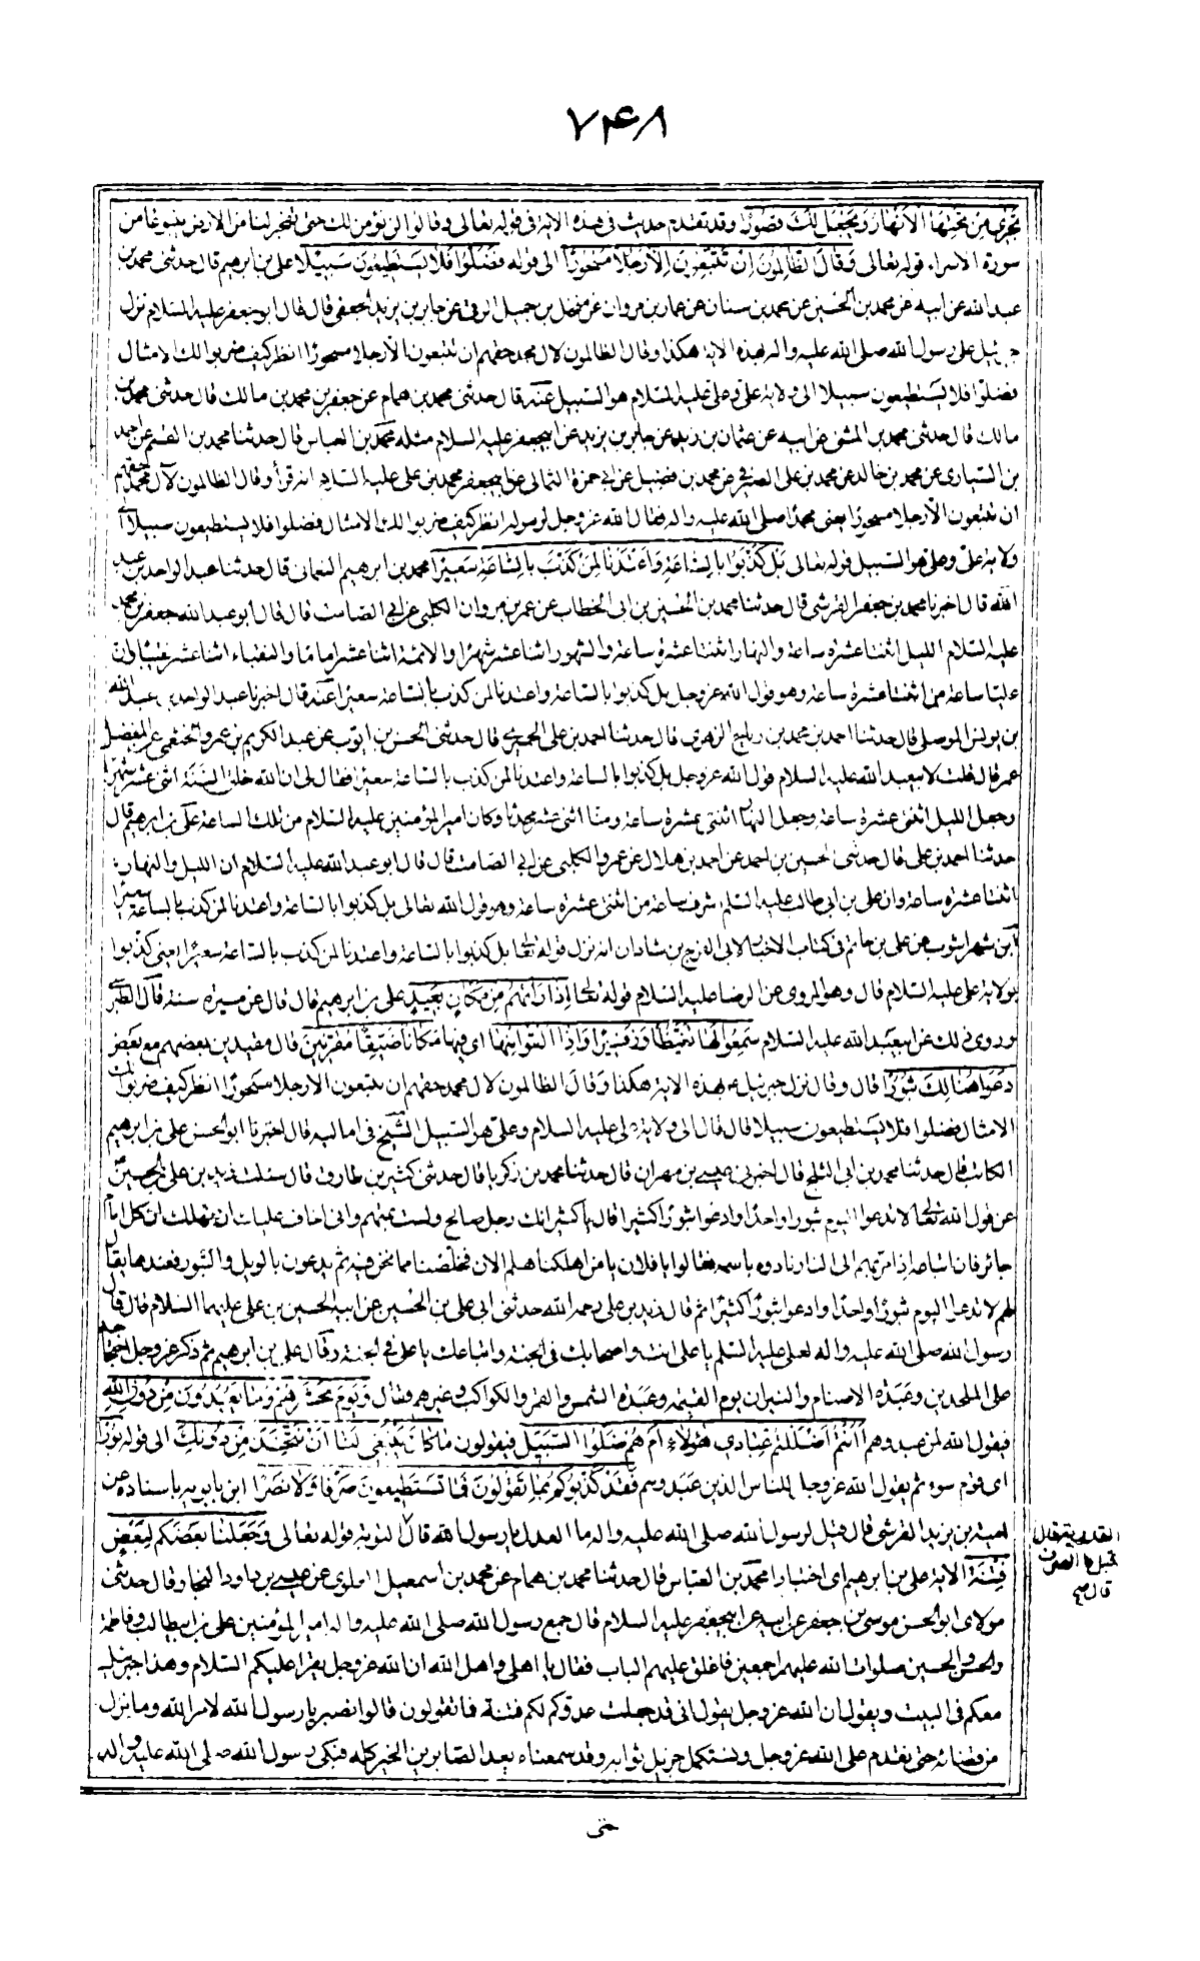 ۷۴۸
تَجْرِي مِنْ تَحْتِهَا الْأَنْهَارُ وَيَجْعَلْ لَكَ قُصُورًا وقد تقدم حديث فى هذه الاية فى قوله تعالى وقالوا لن نؤمن لك حتى تفجر لنا من الارض ينبوعا من
سورة الاسراء قوله تعالى وَقَالَ الظَّالِمُونَ اِنْ تَتَّبِعُونَ اِلَّا رَجُلًا مَسْحُورًا الى قوله فَضَلُّوا فَلَا يَسْتَطِيعُونَ سَبِيلًا على بن ابرهيم قال حدثنى محمد بن
عبد الله عن ابيه عن محمد بن الحسين عن محمد بن سنان عن عمار بن مروان عن منخل بن جميل الرقى عن جابر بن يزيد الجعفى قال قال ابو جعفر عليه السلام نزل
جبرئيل على رسول الله صلى الله عليه واله بهذه الاية هكذا وقال الظالمون لال محمد حقهم ان تتبعون الا رجلا مسحورا انظر كيف ضربوا لك الامثال
فضلوا فلا يستطيعون سبيلا الى ولاية على وعلى عليه السلام هو السبيل عنه قال حدثنى محمد بن همام عن جعفر بن محمد بن مالك قال حدثنى محمد بن
مالك قال حدثنى محمد بن المثنى عن ابيه عن عثمان بن زيد عن جابر بن يزيد عن ابيجعفر عليه السلام مثله محمد بن العباس قال حدثنا محمد بن القسم عن احمد
بن السيارى عن محمد بن خالد عن محمد بن على الصيرفى عن محمد بن فضيل عن ابى حمزة الثمالى عن ابيجعفر محمد بن على عليه السلام انه قرأ وقال الظالمون لآل محمد حقهم
ان تتبعون الا رجلا مسحورا يعنى محمدا صلى الله عليه واله فقال الله عز وجل لرسوله انظر كيف ضربوا لك الامثال فضلوا فلا يستطيعون سبيلا الى
ولاية على وعلى هو السبيل قوله تعالى بَلْ كَذَّبُوا بِالسَّاعَةِ وَاَعْتَدْنَا لِمَنْ كَذَّبَ بِالسَّاعَةِ سَعِيرًا محمد بن ابرهيم النعمانى قال حدثنا عبد الواحد بن عبد
الله قال اخبرنا محمد بن جعفر القرشى قال حدثنا محمد بن الحسين بن ابى الخطاب عن عمر بن مروان الكلبى عن ابى الصامت قال قال ابو عبد الله جعفر بن محمد
عليه السلام الليل اثنتا عشرة ساعة والنهار اثنتا عشرة ساعة والشهور اثنا عشر شهرا والائمة اثنا عشر اماما والنقباء اثنا عشر نقيبا وان
عليا ساعة من اثنتا عشرة ساعة وهو قول الله عز وجل بل كذبوا بالساعة واعتدنا لمن كذب بالساعة سعيرا عنه قال اخبرنا عبد الواحد بن عبد الله
بن يونس الموصلى قال حدثنا احمد بن محمد بن رباح الزهرى قال حدثنا احمد بن على الحميرى قال حدثنى الحسن بن ايوب عن عبد الكريم بن عمرو الخثعمى عن المفضل
عمر قال قلت لابيعبد الله عليه السلام قول الله عز وجل بل كذبوا بالساعة واعتدنا لمن كذب بالساعة سعيرا فقال لى ان الله خلق السنة اثنى عشر شهرا
وجعل الليل اثنى عشرة ساعة وجعل النهار اثنتى عشرة ساعة ومنا اثنى عشر محدثا وكان امير المؤمنين عليه السلام من تلك الساعة على بن ابرهيم قال
حدثنا احمد بن على قال حدثنى الحسين بن احمد عن احمد بن هلال عن عمرو الكلبى عن ابى الصامت قال قال ابو عبد الله عليه السلام ان الليل والنهار
اثنتا عشرة ساعة وان على بن ابى طالب عليه السلم شرف ساعة من اثنتى عشرة ساعة وهو قول الله تعالى بل كذبوا بالساعة واعتدنا لمن كذب بالساعة سعيرا
ابن شهراشوب عن على بن حاتم فى كتاب الاخبار لابى الفرج بن شاذان انه نزل قوله تعالى بل كذبوا بالساعة واعتدنا لمن كذب بالساعة سعيرا يعنى كذبوا
بولاية على عليه السلام قال وهو المروى عن الرضا عليه السلام قوله تعالى اِذَا رَاَتْهُمْ مِنْ مَكَانٍ بَعِيدٍ على بن ابرهيم قال قال من مسيرة سنة قال الطبرسى
وروى ذلك عن ابيعبد الله عليه السلام سَمِعُوا لَهَا تَغَيُّظًا وَزَفِيرًا وَاِذَا اُلْقُوا مِنْهَا اى فيها مَكَانًا ضَيِّقًا مُقَرَّنِينَ قال مقيدين بعضهم مع بعض
دَعَوْا هُنَالِكَ ثُبُورًا قال وقال نزل جبرئيل بهذه الاية هكذا وقال الظالمون لال محمد حقهم ان تتبعون الا رجلا مسحورا انظر كيف ضربوا لك
الامثال فضلوا فلا يستطيعون سبيلا قال قال الى ولاية على عليه السلام وعلى هو السبيل الشيخ فى اماليه قال اخبرنا ابو الحسن على بن ابرهيم
الكاتب قال حدثنا محمد بن ابى الثلج قال اخبرنى عيسى بن مهران قال حدثنا محمد بن زكريا قال حدثنى كثير بن طارق قال سئلت زيد بن على بن الحسين
عن قول الله تعالى لا تدعوا اليوم ثبورا واحدا وادعوا ثبورا كثيرا قال يا كثير انك رجل صالح ولست بمتهم وانى اخاف عليك ان تهلك ان كل امام
جائر فان اتباعه اذا امر بهم الى النار نادوه باسمه فقالوا يا فلان يا من اهلكنا هلم الان فخلصنا مما نحن فيه ثم يدعون بالويل والثبور فعندها يقال
لهم لا تدعوا اليوم ثبورا واحدا وادعوا ثبورا كثيرا ثم قال زيد بن على رحمه الله حدثنى ابى على بن الحسين عن ابيه الحسين بن على عليهما السلام قال قال
رسول الله صلى الله عليه واله لعلى عليه السلم يا على انت واصحابك فى الجنة واتباعك يا على فى الجنة وقال على بن ابرهيم ثم ذكر عز وجل احتجاجه
على الملحدين وعبدة الاصنام والنيران يوم القيمة وعبدة الشمس والقمر والكواكب وغيرهم فقال وَيَوْمَ يَحْشُرُهُمْ وَمَا يَعْبُدُونَ مِنْ دُونِ اللهِ
فيقول الله لمن عبدوهم أَأَنْتُمْ اَضْلَلْتُمْ عِبَادِي هٰؤُلَاءِ اَمْ هُمْ ضَلُّوا السَّبِيلَ فيقولون مَا كَانَ يَنْبَغِي لَنَا اَنْ نَتَّخِذَ مِنْ دُونِكَ الى قوله بُورًا
اى قوم سوء ثم يقول الله عز وجل للناس الذين عبدوهم فَقَدْ كَذَّبُوكُمْ بِمَا تَقُولُونَ فَمَا تَسْتَطِيعُونَ صَرْفًا وَلَا نَصْرًا ابن بابويه باسناده عن
امية بن يزيد القرشى قال قيل لرسول الله صلى الله عليه واله ما العدل يا رسول الله قال الفدية قوله تعالى وَجَعَلْنَا بَعْضَكُمْ لِبَعْضٍ
فِتْنَةً الاية على بن ابرهيم اى اختبارا محمد بن العباس قال حدثنا محمد بن همام عن محمد بن اسمعيل العلوى عن عيسى بن داود النجار قال حدثنى
مولاى ابو الحسن موسى بن جعفر عن ابيه عن ابيجعفر عليه السلام قال جمع رسول الله صلى الله عليه واله امير المؤمنين على بن ابيطالب وفاطمة
والحسن والحسين صلوات الله عليهم اجمعين فاغلق عليهم الباب فقال يا اهلى واهل الله ان الله عز وجل يقرا عليكم السلام وهذا جبرئيل
معكم فى البيت ويقول ان الله عز وجل يقول انى قد جعلت عدوكم لكم فتنة فما تقولون قالوا نصبر يا رسول الله لامر الله وما نزل
من قضائه حتى نقدم على الله عز وجل ونستكمل جزيل ثوابه وقد سمعناه يعد الصابرين الخير كله فبكى رسول الله صلى الله عليه واله
قيل ما الصرف
قال
حتى